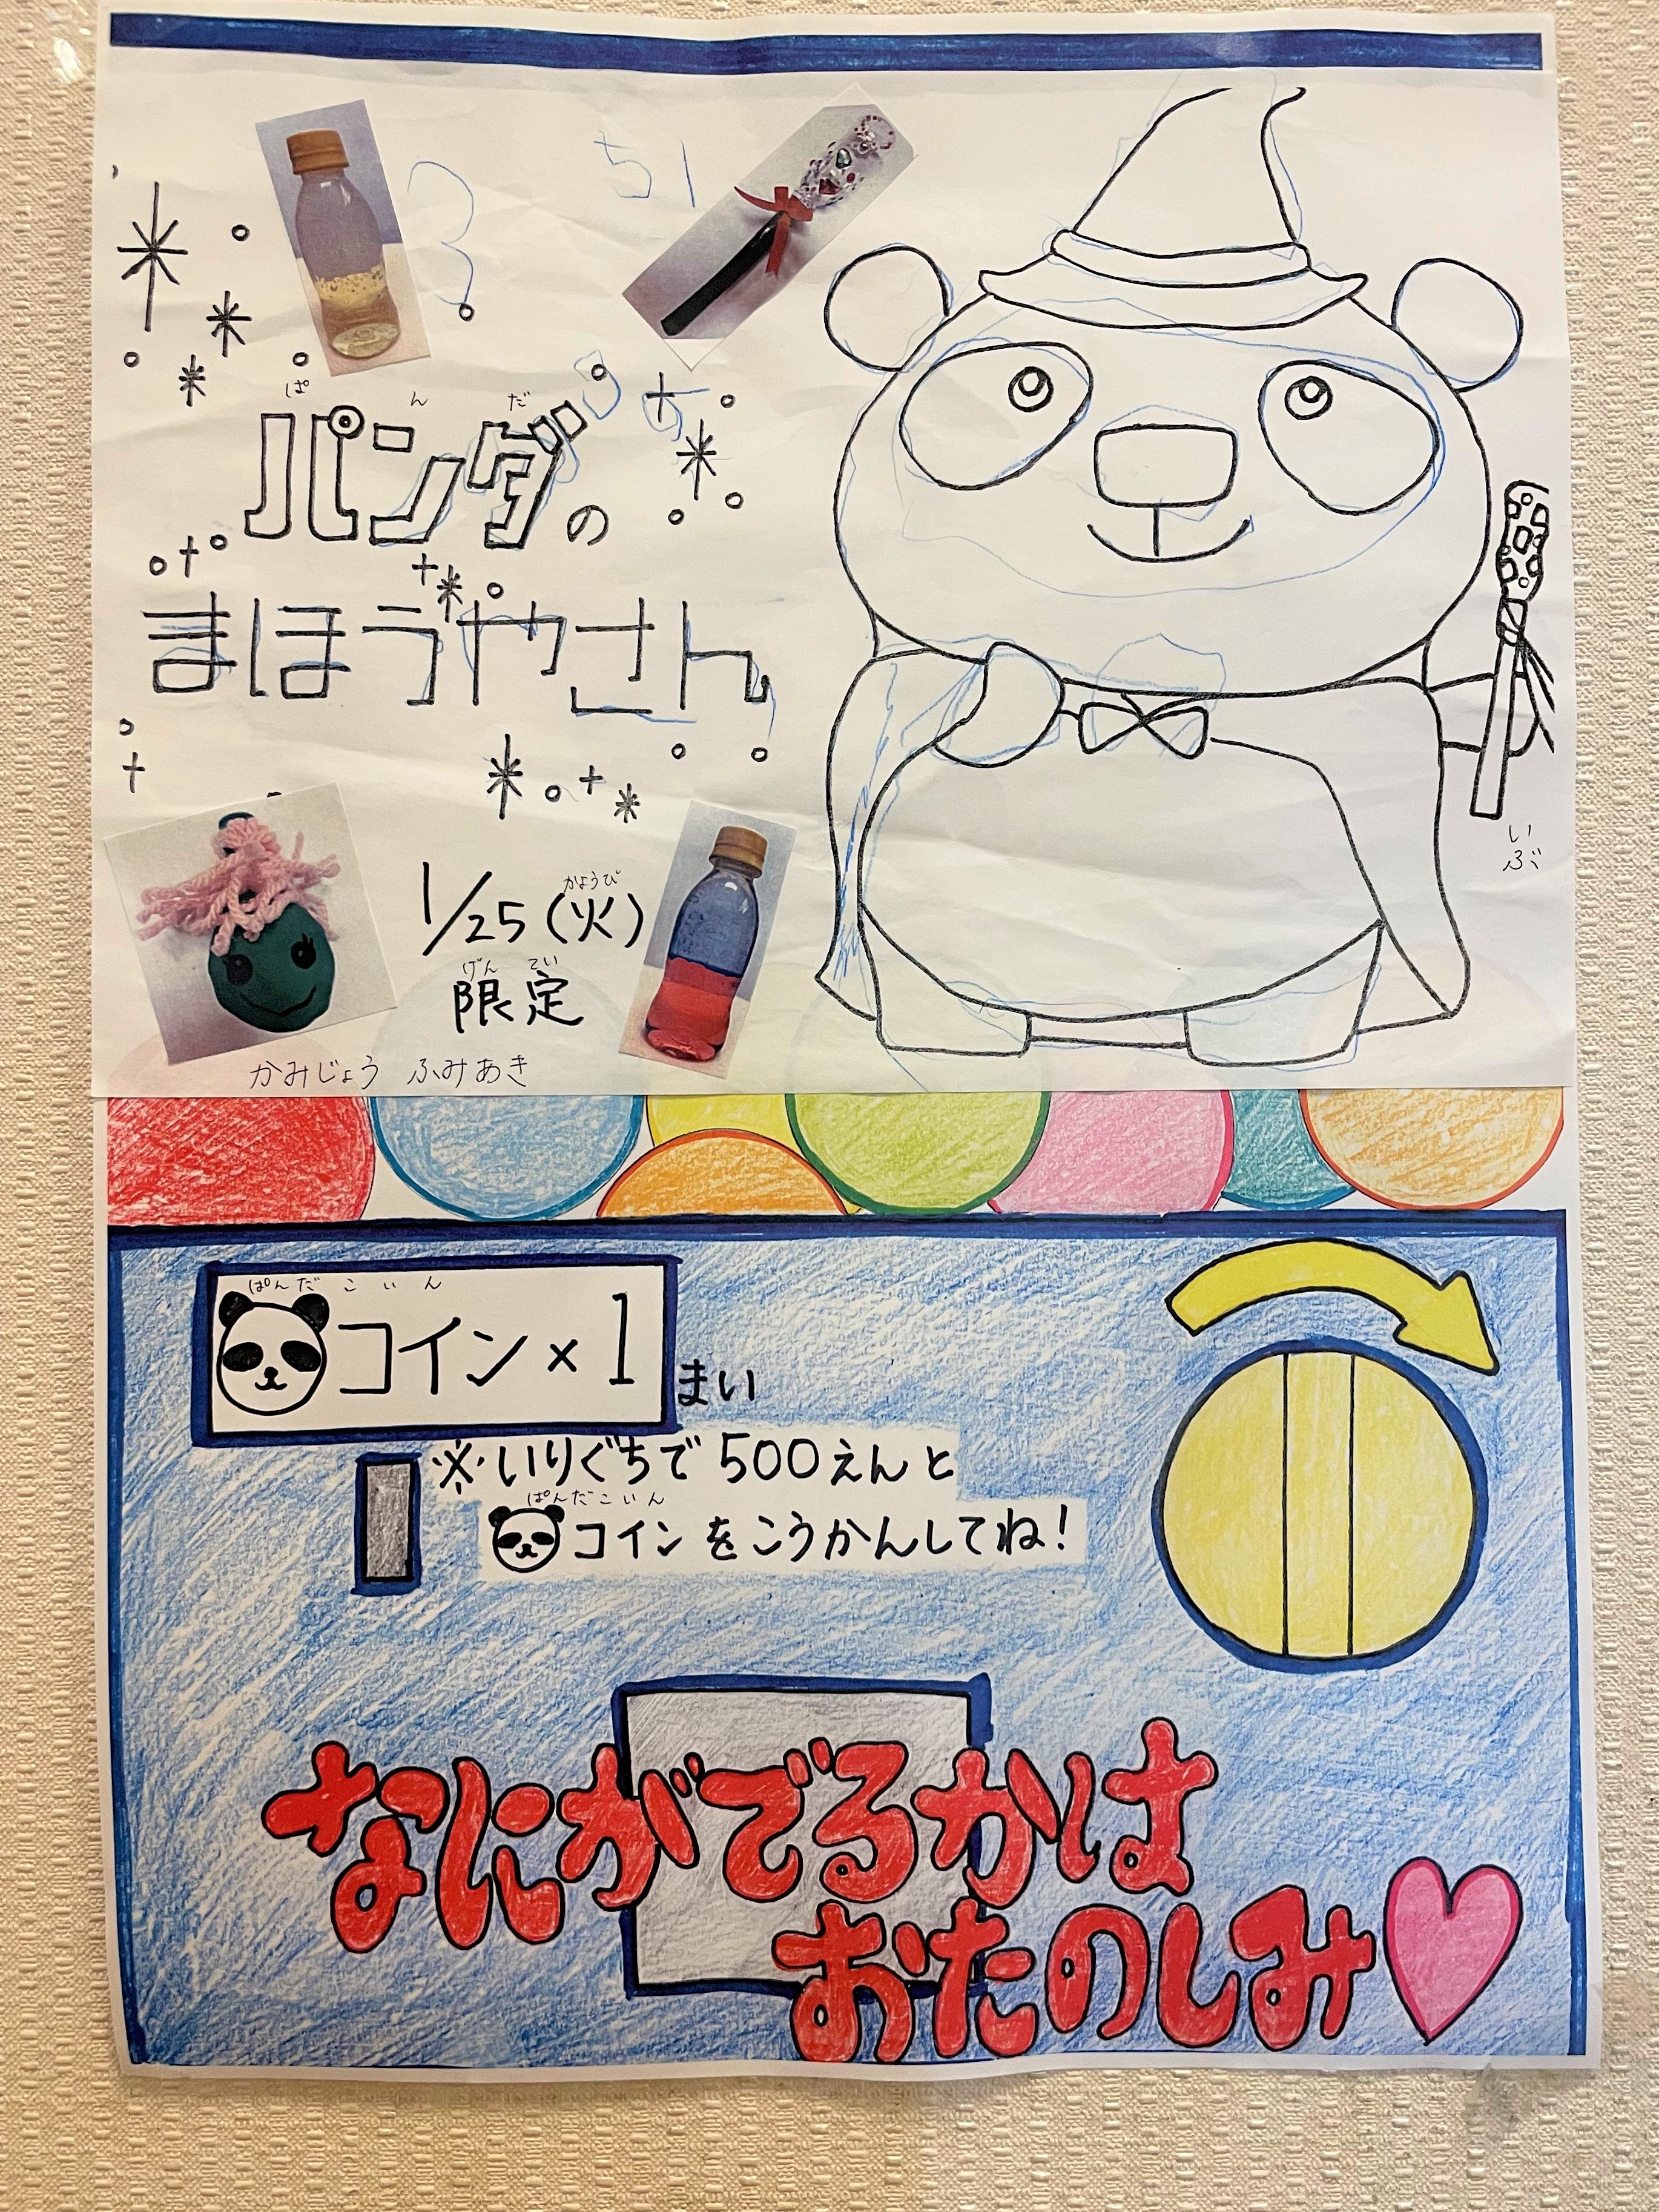 ち
ぱ ん だ
パンダの
まほうやさん
1/25(火)
かようび
限定
げん てい
かみじょう ふみあき
いぶ
ぱんだ こいん
コイン×1
まい
※いりぐちで500えんと
ぱんだこいん
コインをこうかんしてね!
なにがでるかは
おたのしみ